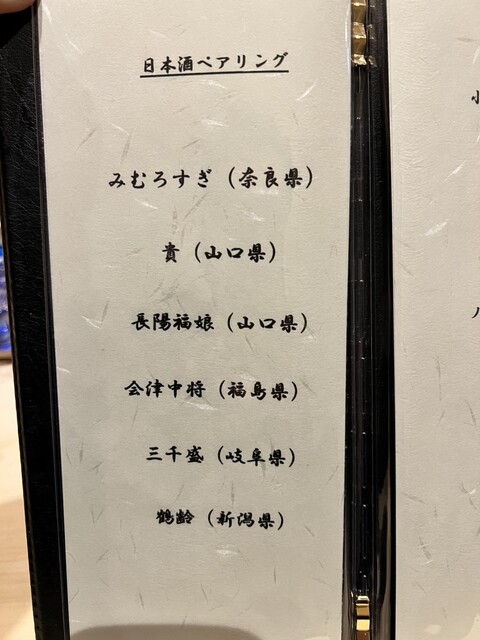 日本酒ペアリング
みむろすぎ（奈良県）
貴（山口県）
長陽福娘（山口県）
会津中将（福島県）
三千盛（岐阜県）
鶴齢（新潟県）
小